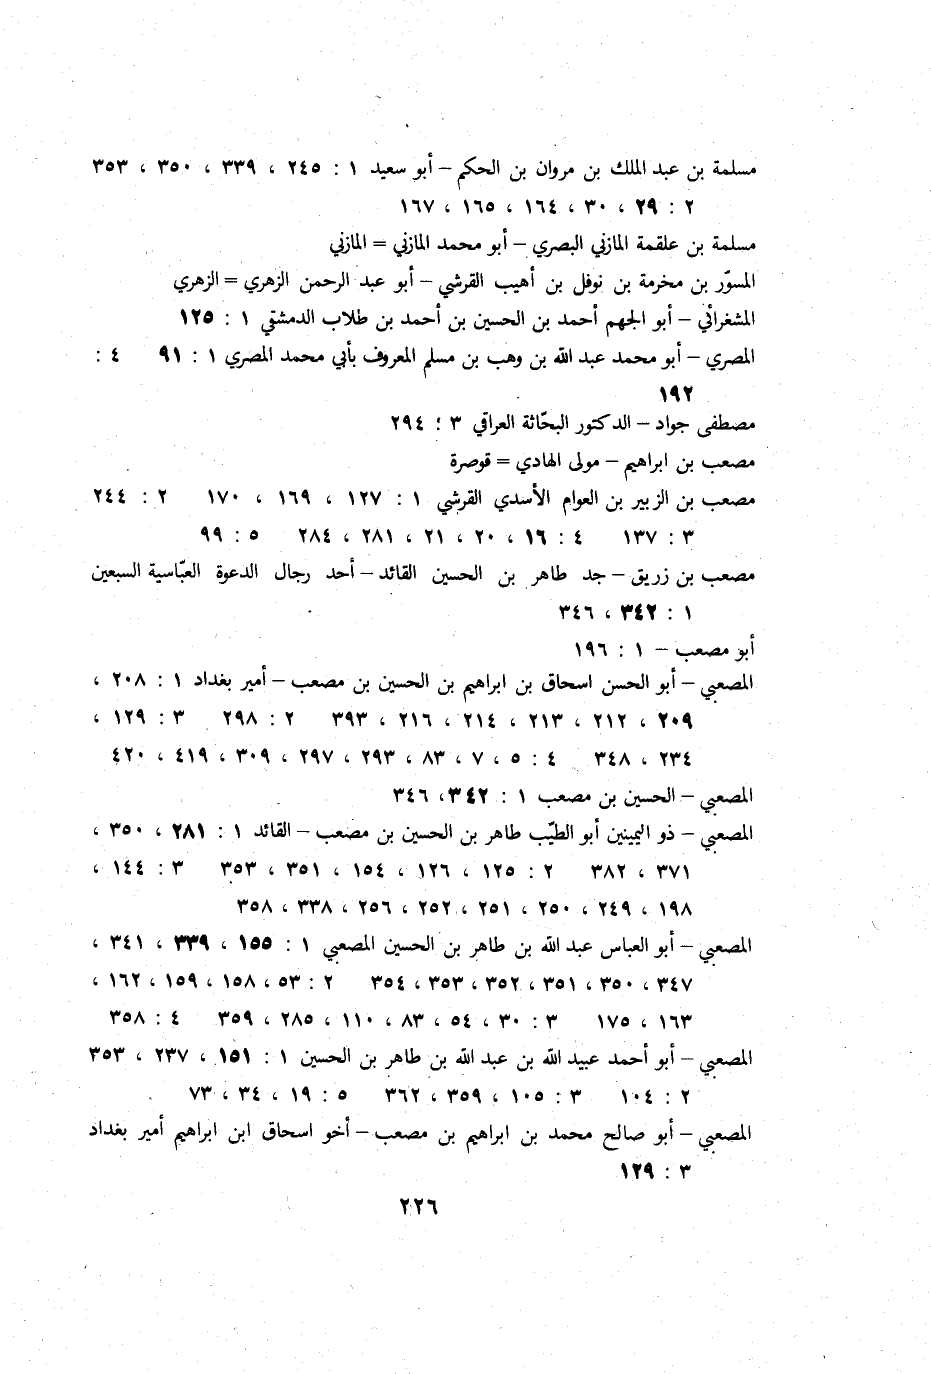 مسلمة بن عبد الملك بن مروان بن الحكم – أبو سعيد ١ : ٢٤٥ ، ٣٣٩ ، ٣٥٠ ، ٣٥٣
٢ : ٢٩ ، ٣٠ ، ١٦٤ ، ١٦٥ ، ١٦٧
مسلمة بن علقمة المازني البصري – أبو محمد المازني = المازني
المسوّر بن مخرمة بن نوفل بن أهيب القرشي – أبو عبد الرحمن الزهري = الزهري
المشغرائي – أبو الجهم أحمد بن الحسين بن أحمد بن طلاب الدمشقي ١ : ١٢٥
المصري – أبو محمد عبد الله بن وهب بن مسلم المعروف بأبي محمد المصري ١ : ٩١ ٤ :
١٩٢
مصطفى جواد – الدكتور البحّاثة العراقي ٣ : ٢٩٤
مصعب بن ابراهيم – مولى الهادي = قوصرة
مصعب بن الزبير بن العوام الأسدي القرشي ١ : ١٢٧ ، ١٦٩ ، ١٧٠ ٢ : ٢٤٤
٣ : ١٣٧ ٤ : ١٦ ، ٢٠ ، ٢١ ، ٢٨١ ، ٢٨٤ ٥ : ٩٩
مصعب بن زريق – جد طاهر بن الحسين القائد – أحد رجال الدعوة العبّاسية السبعين
١ : ٣٤٢ ، ٣٤٦
أبو مصعب – ١ : ١٩٦
المصعبي – أبو الحسن اسحاق بن ابراهيم بن الحسين بن مصعب – أمير بغداد ١ : ٢٠٨ ،
٢٠٩ ، ٢١٢ ، ٢١٣ ، ٢١٤ ، ٢١٦ ، ٣٩٣ ٢ : ٢٩٨ ٣ : ١٢٩ ،
٢٣٤ ، ٣٤٨ ٤ : ٥ ، ٧ ، ٨٣ ، ٢٩٣ ، ٢٩٧ ، ٣٠٩ ، ٤١٩ ، ٤٢٠
المصعبي – الحسين بن مصعب ١ : ٣٤٢، ٣٤٦
المصعبي – ذو اليمينين أبو الطيّب طاهر بن الحسين بن مصعب – القائد ١ : ٢٨١ ، ٣٥٠ ،
٣٧١ ، ٣٨٢ ٢ : ١٢٥ ، ١٢٦ ، ١٥٤ ، ٣٥١ ، ٣٥٣ ٣ : ١٤٤ ،
١٩٨ ، ٢٤٩ ، ٢٥٠ ، ٢٥١ ، ٢٥٢ ، ٢٥٦ ، ٣٣٨ ، ٣٥٨
المصعبي – أبو العباس عبد الله بن طاهر بن الحسين المصعبي ١ : ١٥٥ ، ٣٣٩ ، ٣٤١ ،
٣٤٧ ، ٣٥٠ ، ٣٥١ ، ٣٥٢ ، ٣٥٣ ، ٣٥٤ ٢ : ٥٣ ، ١٥٨ ، ١٥٩ ، ١٦٢ ،
١٦٣ ، ١٧٥ ٣ : ٣٠ ، ٥٤ ، ٨٣ ، ١١٠ ، ٢٨٥ ، ٣٥٩ ٤ : ٣٥٨
المصعبي – أبو أحمد عبيد الله بن عبد الله بن طاهر بن الحسين ١ : ١٥١ ، ٢٣٧ ، ٣٥٣
٢ : ١٠٤ ٣ : ١٠٥ ، ٣٥٩ ، ٣٦٢ ٥ : ١٩ ، ٣٤ ، ٧٣
المصعبي – أبو صالح محمد بن ابراهيم بن مصعب – أخو اسحاق ابن ابراهيم أمير بغداد
٣ : ١٢٩
٢٢٦